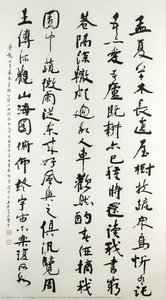 孟夏草木長遶屋樹扶疏衆鳥欣有
託吾亦愛吾廬既耕亦已種時還讀我書窮
巷隔深轍頗迴故人車歡然酌春酒摘我
園中蔬微雨從東來好風與之俱汎覽周
王傳流觀山海圖俯仰終宇宙不樂復何如